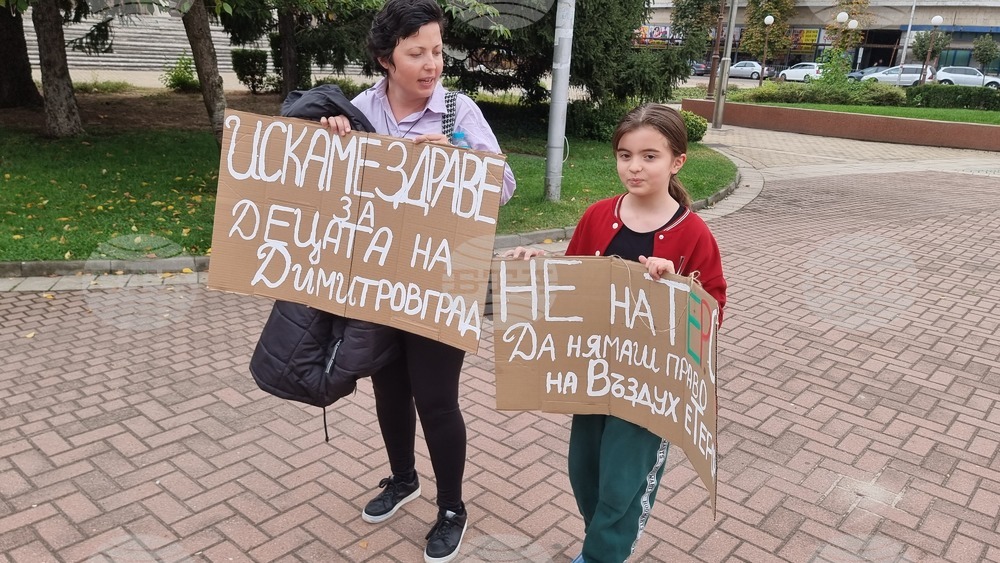 ИСКАМЕ ЗДРАВЕ
ЗА
ДЕЦАТА НА
ДИМИТРОВГРАД
НЕ НА
ДА НЯМАШ ПРАВО
НА ВЪЗДУХ Е